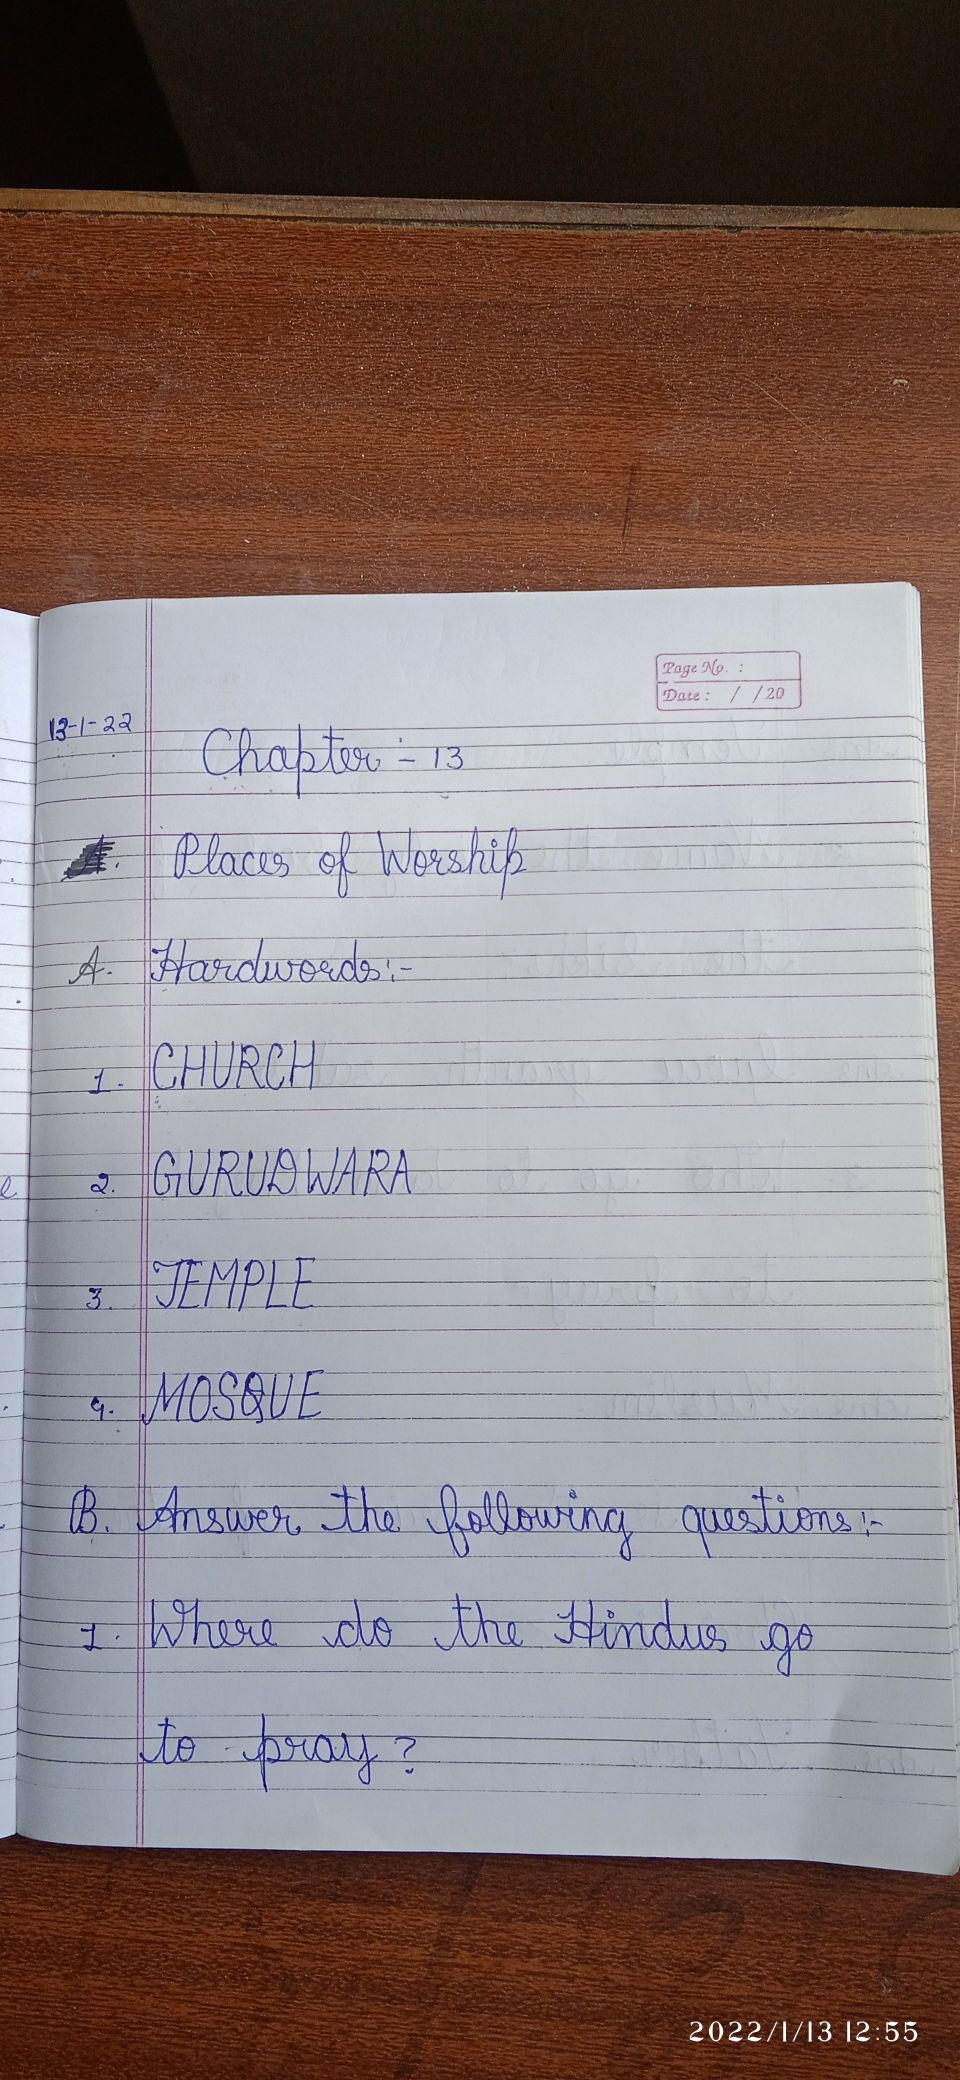 Page No. :
Date : / / 20
13-1-22
Chapter :- 13
Places of Worship
A. Hardwords:-
1. CHURCH
2. GURUDWARA
3. TEMPLE
4. MOSQUE
B. Answer the following questions:-
1. Where do the Hindus go
to pray?
2022/1/13 12:55